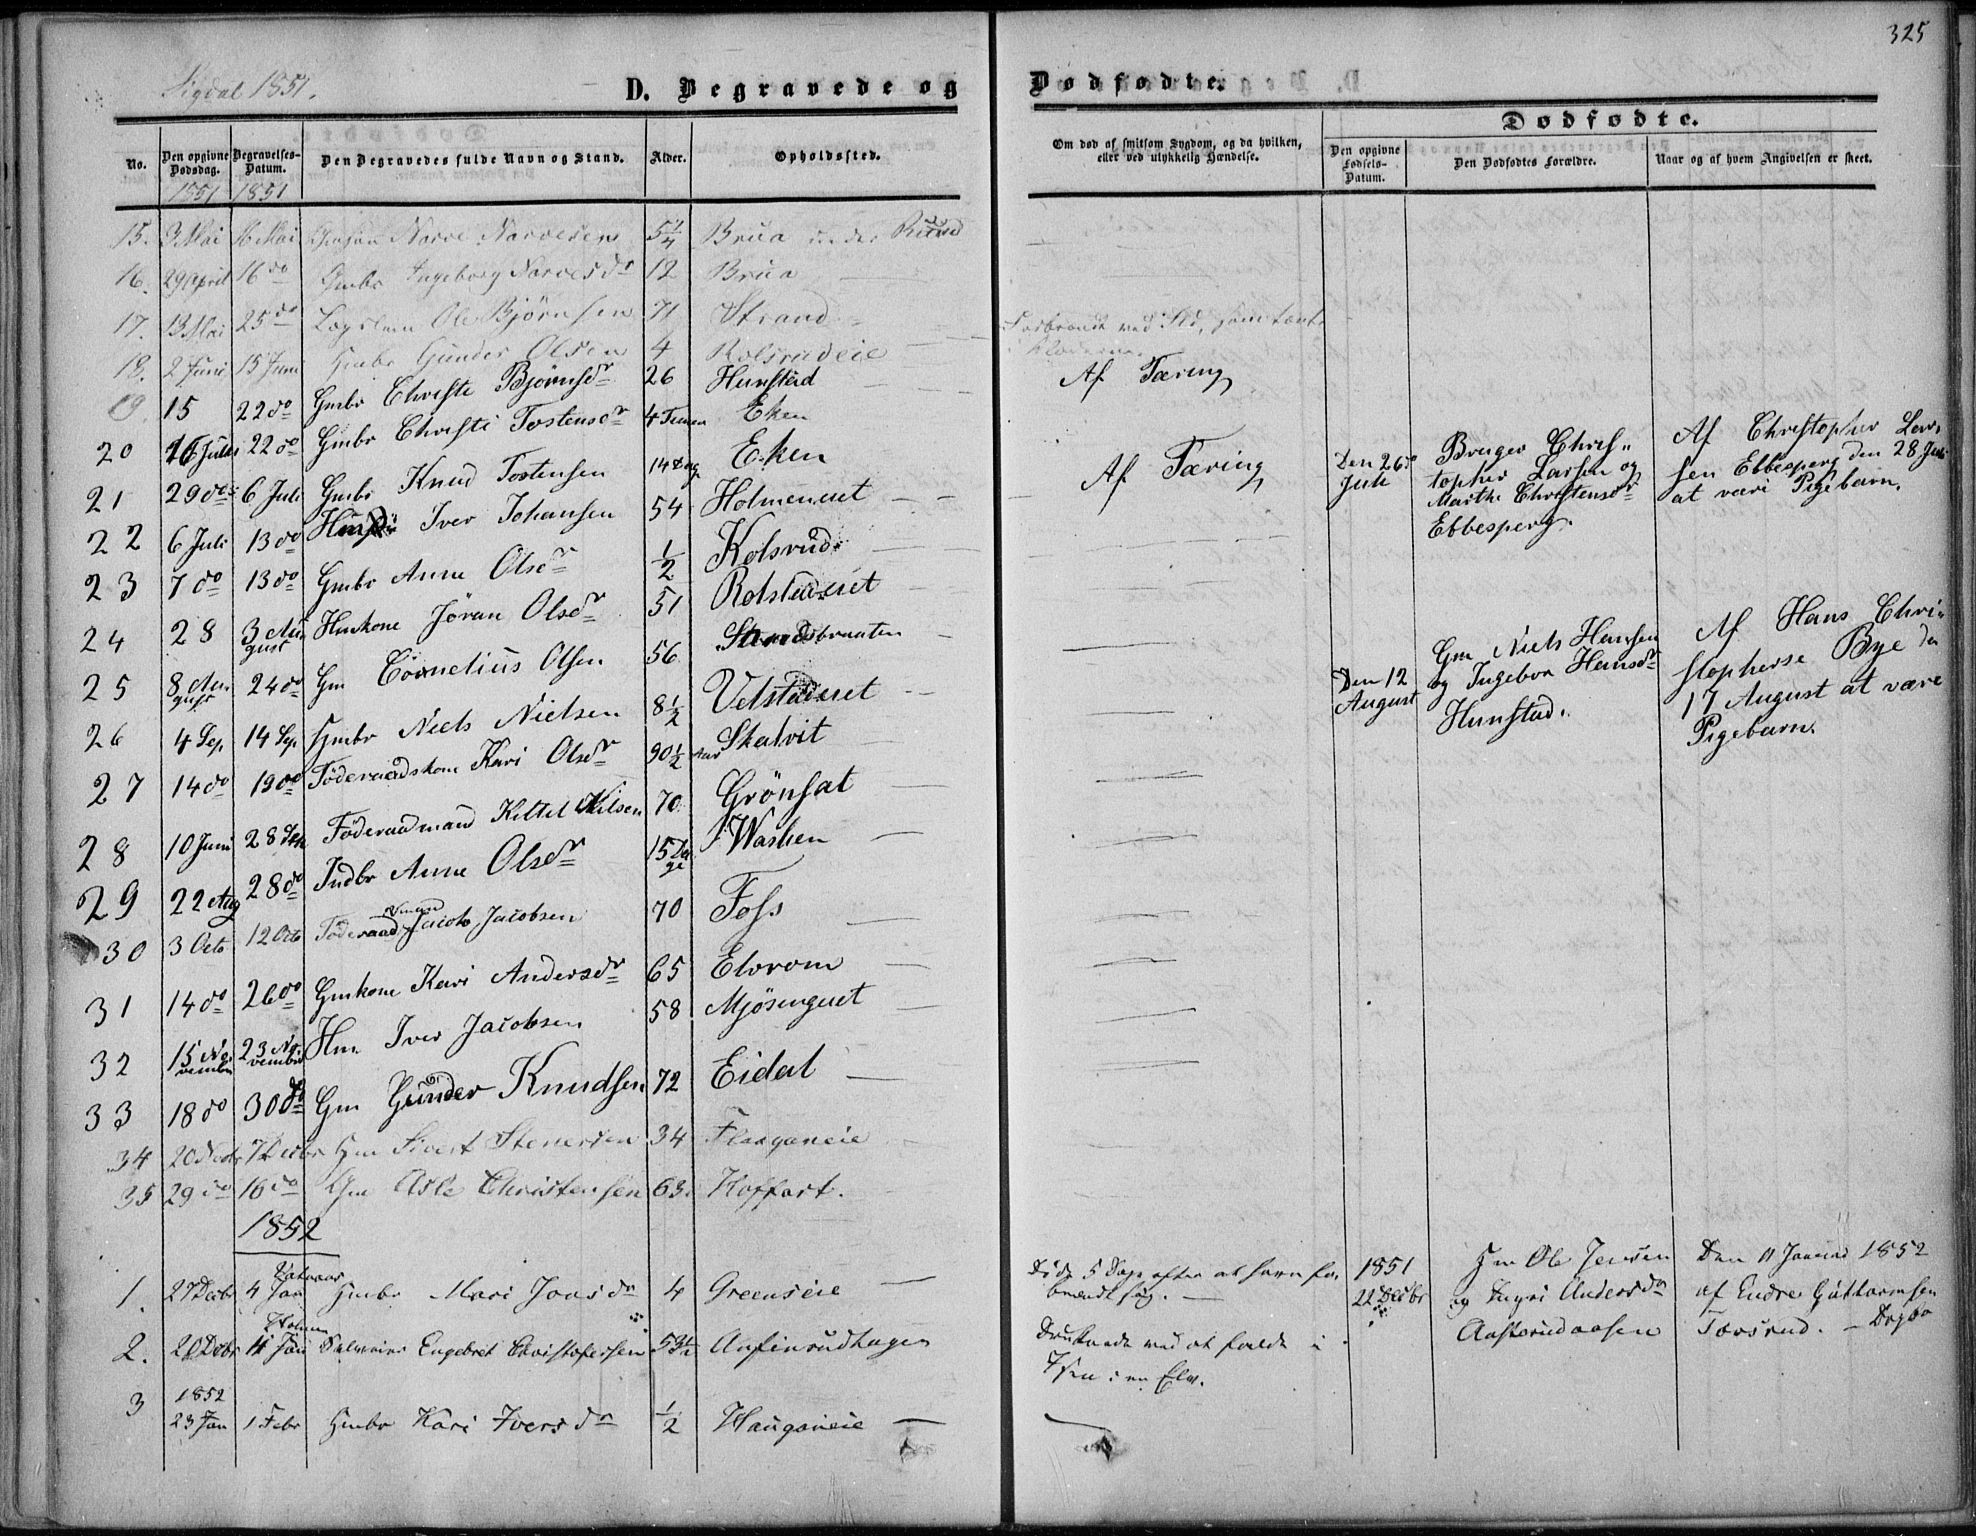 325
Sigdal 1851.
D. Begravede og
Dødfødte.
No.
Den opgivne Dødsdag.
Begravelses-Datum.
Den Begravedes fulde Navn og Stand.
Alder.
Opholdssted.
Om død af smitsom Sygdom, og da hvilken,
eller ved ulykkelig Hændelse.
Dødfødte.
Den opgivne Fødsels-Datum.
Den Dødfødtes Forældre.
Naar og af hvem Angivelsen er skeet.
1851 1851
15. 3 Mai 16 Mai Narve Narvesen 5 1/4 Brua under Ruud
16. 29 April 16 do Gmbr Ingeborg Narvesdr 12 Brua
17. 13 Mai 25 do Ole Bjørnsen 71 Strand
18. 2 Juni 15 Juni Hmbr Gunder Olsen 4 Kolsrudeie
19. 15 22 do Gmbr Christi Bjørnsdr 26 Hunstad Af Tæring
20 22 do Gmbr Christi Tostensdr 4 Timer Eken
21 29 do 6 Juli Gmbr Knud Tostensen 14 Dag Eken
22 6 Juli 13 do Iver Johansen 54 Holmeneiet Af Tæring
Den 26de Juli
Bruger Chris-
topher Larsen og
Marthe Christensdr
Ebbesperg.
Af Christopher Lar-
sen Ebbesperg den 28 Juli
at være Pigebarn.
23 7 do 13 do Gmbr Anne Olsdr 1/2 Kolsrud
24 28 3 August Huskone Jöran Olsdr 51 Rolstadeiet
25 8 August 24 do Gm Cornelius Olsen 56 Strandsbraaten
26 4 Sep. 14 Sep. Hmbr Niels Nielsen 8 1/2 Velstadeiet
Den 12 August
Gm Niels Hansen
og Ingebor Hansdr
Hunstad.
Af Hans Chri-
stopherse Bye den
17 August at være
Pigebarn.
27 14 do 19 do Föderaadskone Kari Olsdr 90 1/2 Aar Skalvit
28 10 Juni 28 Sep Föderaadmand Kittel Nilsen 70 Grönsat
29 22 Aug 28 do Indbr Anne Olsdr 15 Dage Washen
30 3 Octo 12 Octo Föderaadsmand Jacob Jacobsen 70 Foss
31 14 do 26 do Gmkone Kari Andersdr 65 Elvrom
32 15 November 23 November Hm Iver Jacobsen 58 Mjösengeiet
33 18 do 30 do Gm Gunder Knudsen 72 Eidal
34 20 Novbr 7 Decbr Hm Sivert Stenersen 34 Flaaganeie
35 29 do 16 do Gm Asle Christensen 63 Hoffart.
1852
1. 27 Decbr 4 Jan Hmbr Mari Joensdr 4 Greenseie
Död 5 Dage efter at have for-
brændt sig.
1851
22 Decbr
Hm Ole Jensen
og Ingri Andersdr
Aasterudaasen
Den 11 Januar 1852
af Endre Guttormsen
Tovsrud.
2. 20 Decbr 11 Jan Engebret Christofersen 53 1/2 Anfinrudhagen
Druknede ved at falde i
Isen i en Elv.
3 1852
23 Jan 1 Febr Hmbr Kari Iversdr 1/2 Hauganeie